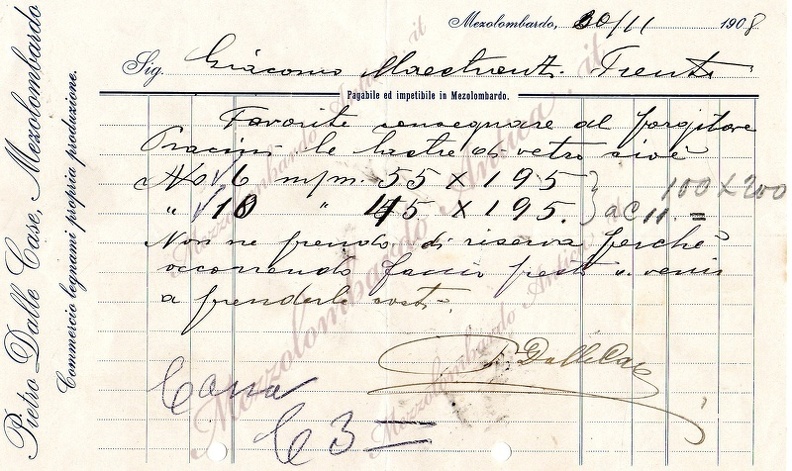 Pietro Dalle Case, Mezolombardo
Commercio legnami propria produzione.
Mezolombardo, 30/11 1908
Sig. Giacomo Trento
Pagabile ed impetibile in Mezolombardo.
Favorite consegnare al
le lastre di vetro cioè
No 6 m/m. 55 X 195
" 10 " 45 X 195. } a C 11. = 100 X 200
Non ne prendo di riserva perchè
occorrendo faccio presto a venir
a prenderle costì.
P. DalleCase
C 3 =
Mezzolombardo Antica.it